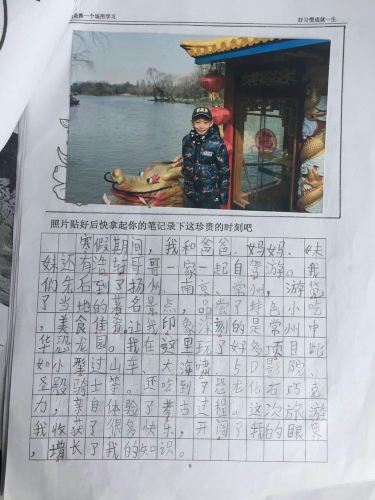 换一个场所学习
好习惯成就一生
照片贴好后快拿起你的笔记录下这珍贵的时刻吧
寒假期间，我和爸爸、妈妈、妹
妹还有浩哥哥一家一起自驾游。我
们先后到了扬州、南京、常州，游览
了当地的著名景点，品尝了特色小吃
，美食佳肴，让我印象深刻的是常州中
华恐龙园。我在这里玩了好多项目，
如小型过山车、大海啸、5D影院、
圣殿骑士等。还吃到了恐龙化石巧克
力，亲自体验了考古过程。这次旅游
我收获了很多快乐，开阔了我的眼界
，增长了我的知识。